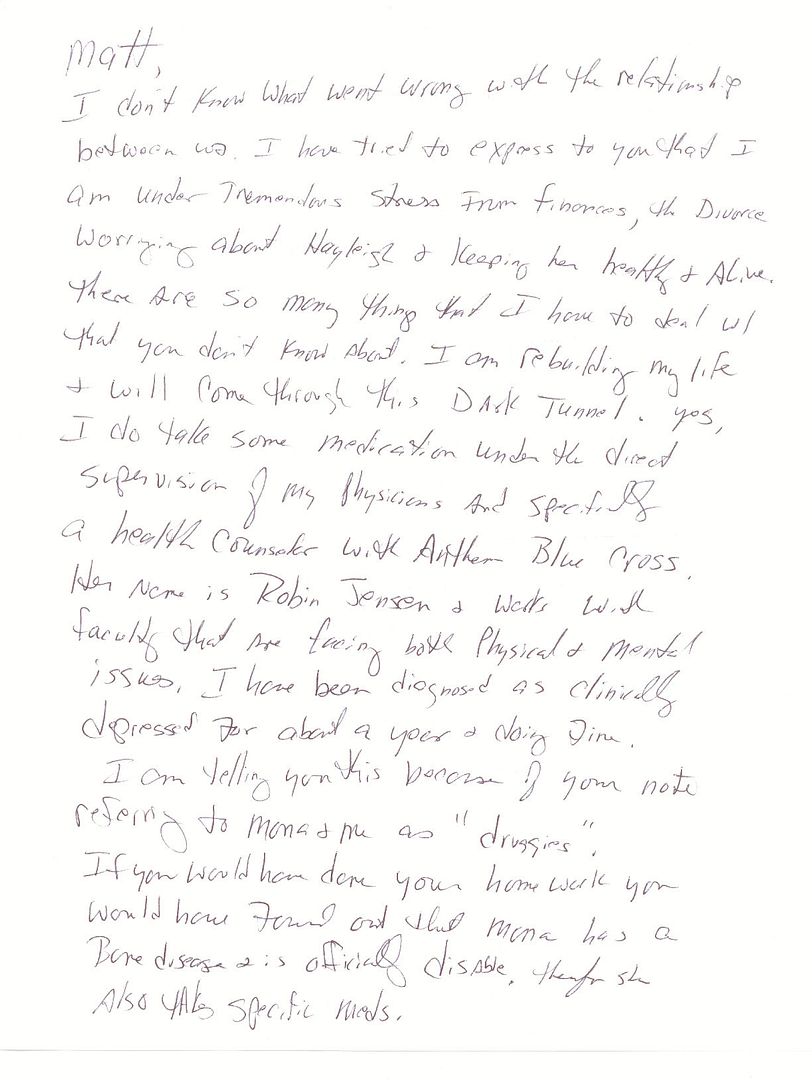 Matt,
I don't know what went wrong with the relationship
between us. I have tried to express to you that I
am under Tremendous Stress From finances, the Divorce
Worrying about Hayleigh & Keeping her healthy & Alive.
there are so many thing that I have to deal w/
that you don't know About. I am rebuilding my life
& will Come through this Dark Tunnel. yes,
I do take some medication under the direct
supervision of my Physicians and specifically
a health Counselor with Anthem Blue Cross.
Her Name is Robin Jensen & works with
faculty that are facing both Physical & mental
issues. I have been diagnosed as clinically
depressed For about a year & doing Fine.
I am telling you this because of your note
referring to Mona & me as "druggies".
If you would have done your home work you
would have Found out that Mona has a
Bone disease & is officially disable, therefor she
Also takes specific meds.